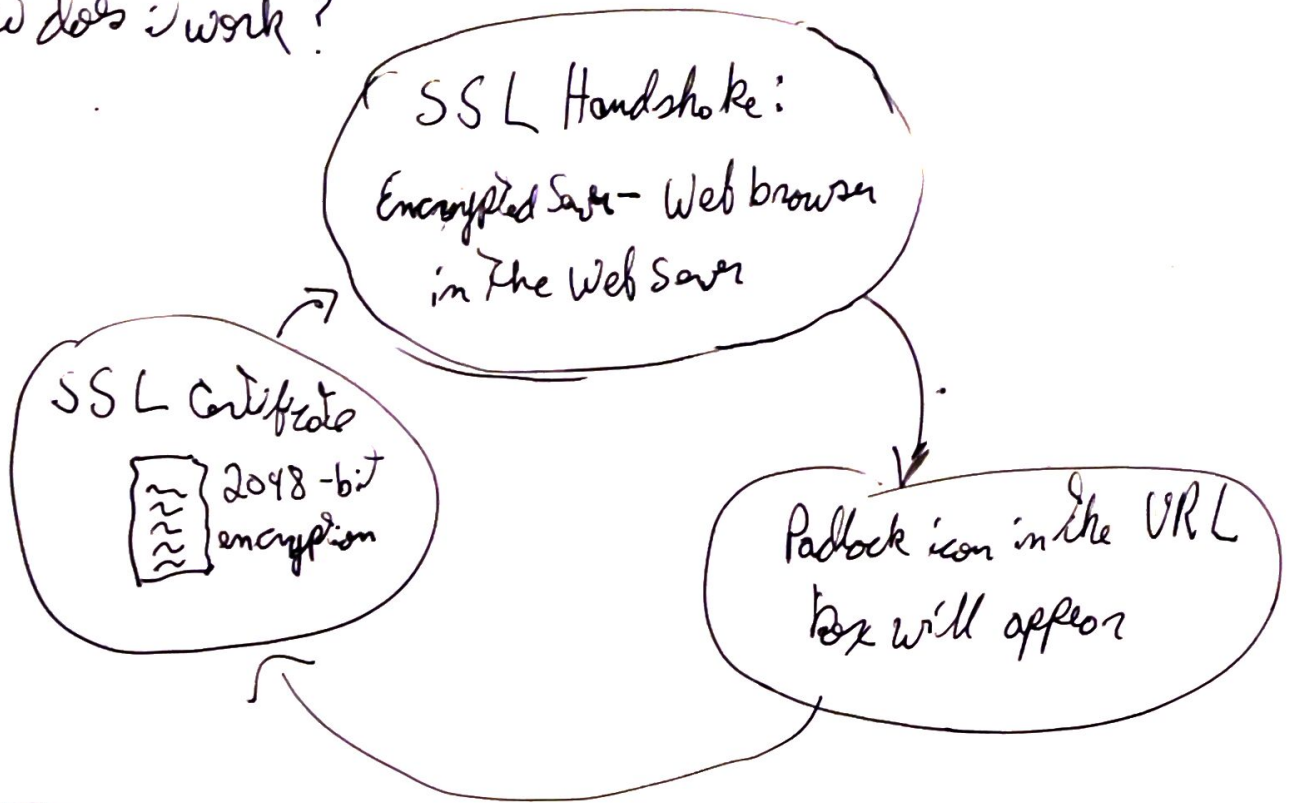 does it work?
SSL Handshake:
Encrypted Server - Web browser
in the Web Server
SSL Certificate
2048-bit
encryption
Padlock icon in the URL
box will appear